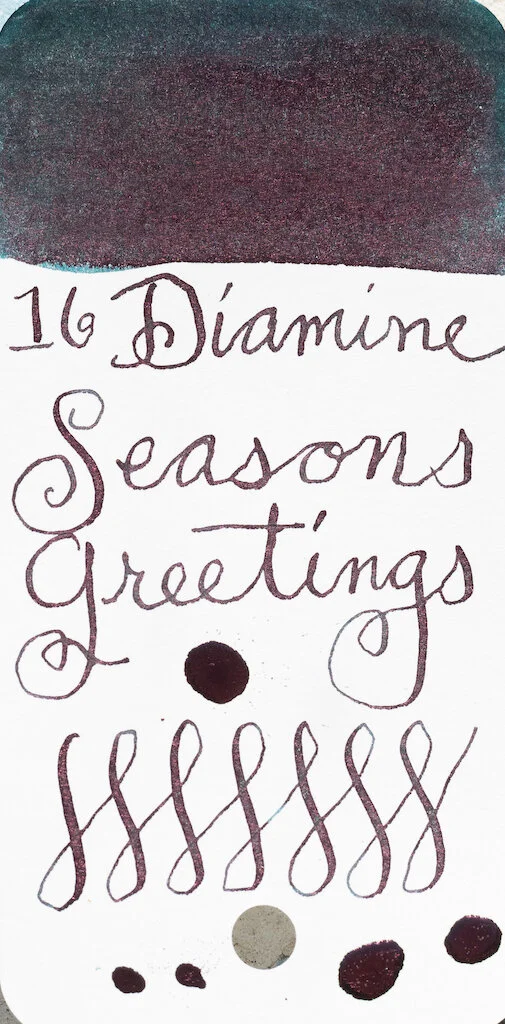 16 Diamine
Seasons
Greetings